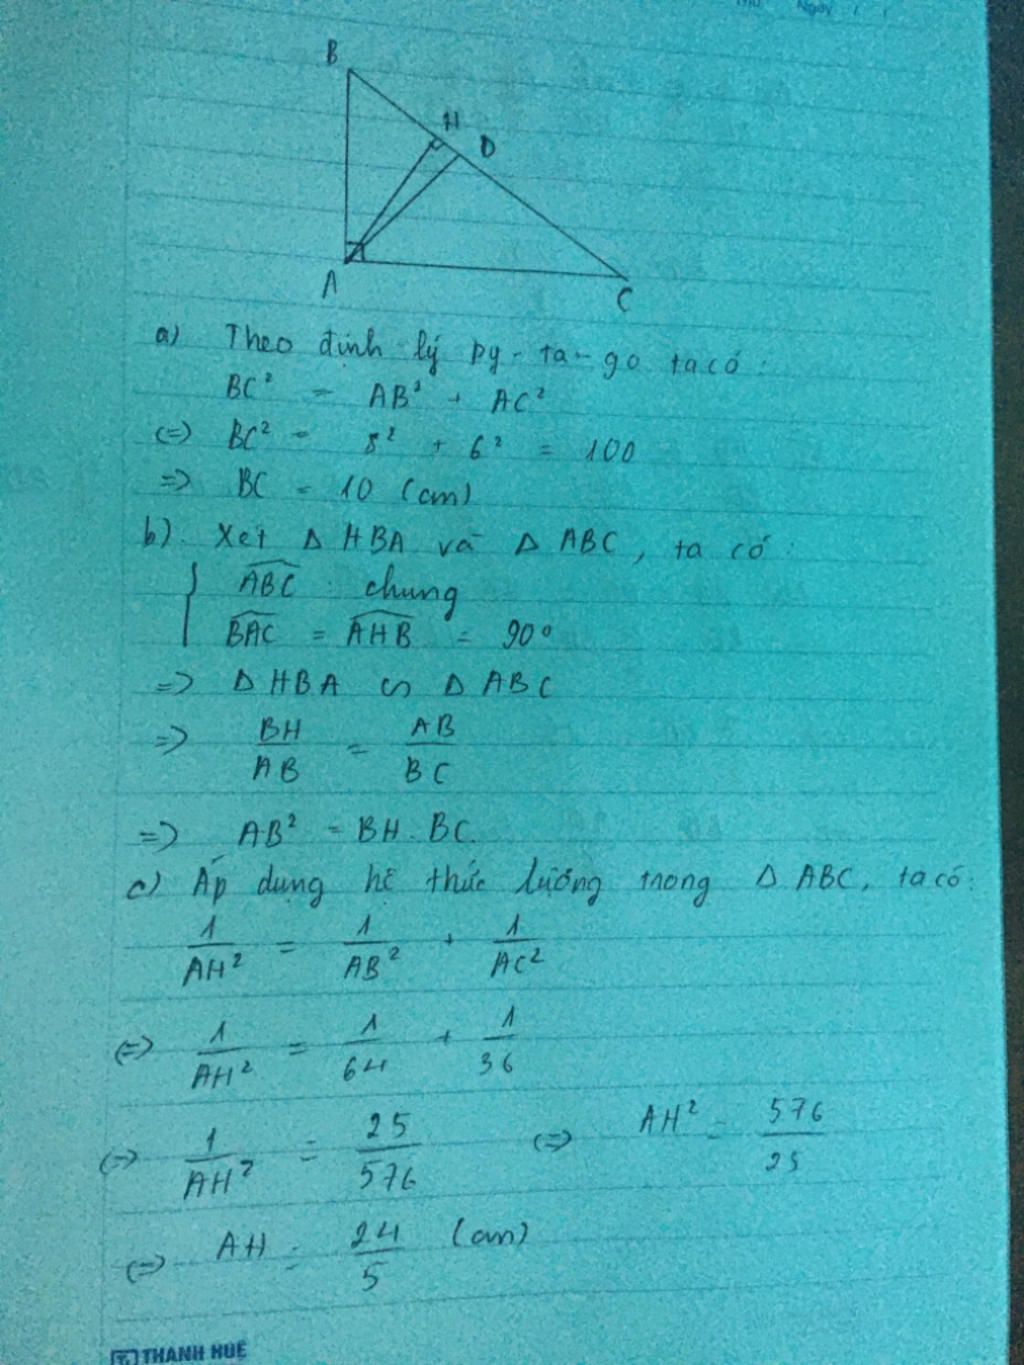 Thứ Ngày / /
B
H
D
A
C
a) Theo định lý py-ta-go ta có:
BC² = AB² + AC²
(=) BC² = 8² + 6² = 100
=> BC = 10 (cm)
b). Xét Δ HBA và Δ ABC, ta có:
{ ABC : chung
BAC = AHB = 90°
=> Δ HBA ∽ Δ ABC
=> BH/AB = AB/BC
=> AB² = BH . BC.
c) Áp dụng hệ thức lượng trong Δ ABC, ta có:
1/AH² = 1/AB² + 1/AC²
(=> 1/AH² = 1/64 + 1/36
(=> 1/AH² = 25/576 (=> AH² = 576/25
(=> AH = 24/5 (cm)
THANH HUẾ